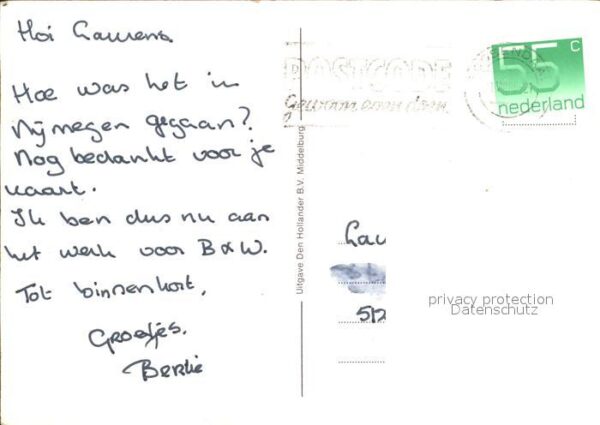 Hoi Laurens
Hoe was het in
Nijmegen gegaan?
Nog bedankt voor je
kaart.
Ik ben dus nu aan
het werk voor B&W.
Tot binnenkort,
Groetjes.
Bertie
Uitgave Den Hollander B.V. Middelburg
POSTCODE
55 C
nederland
Lau
512
privacy protection
Datenschutz